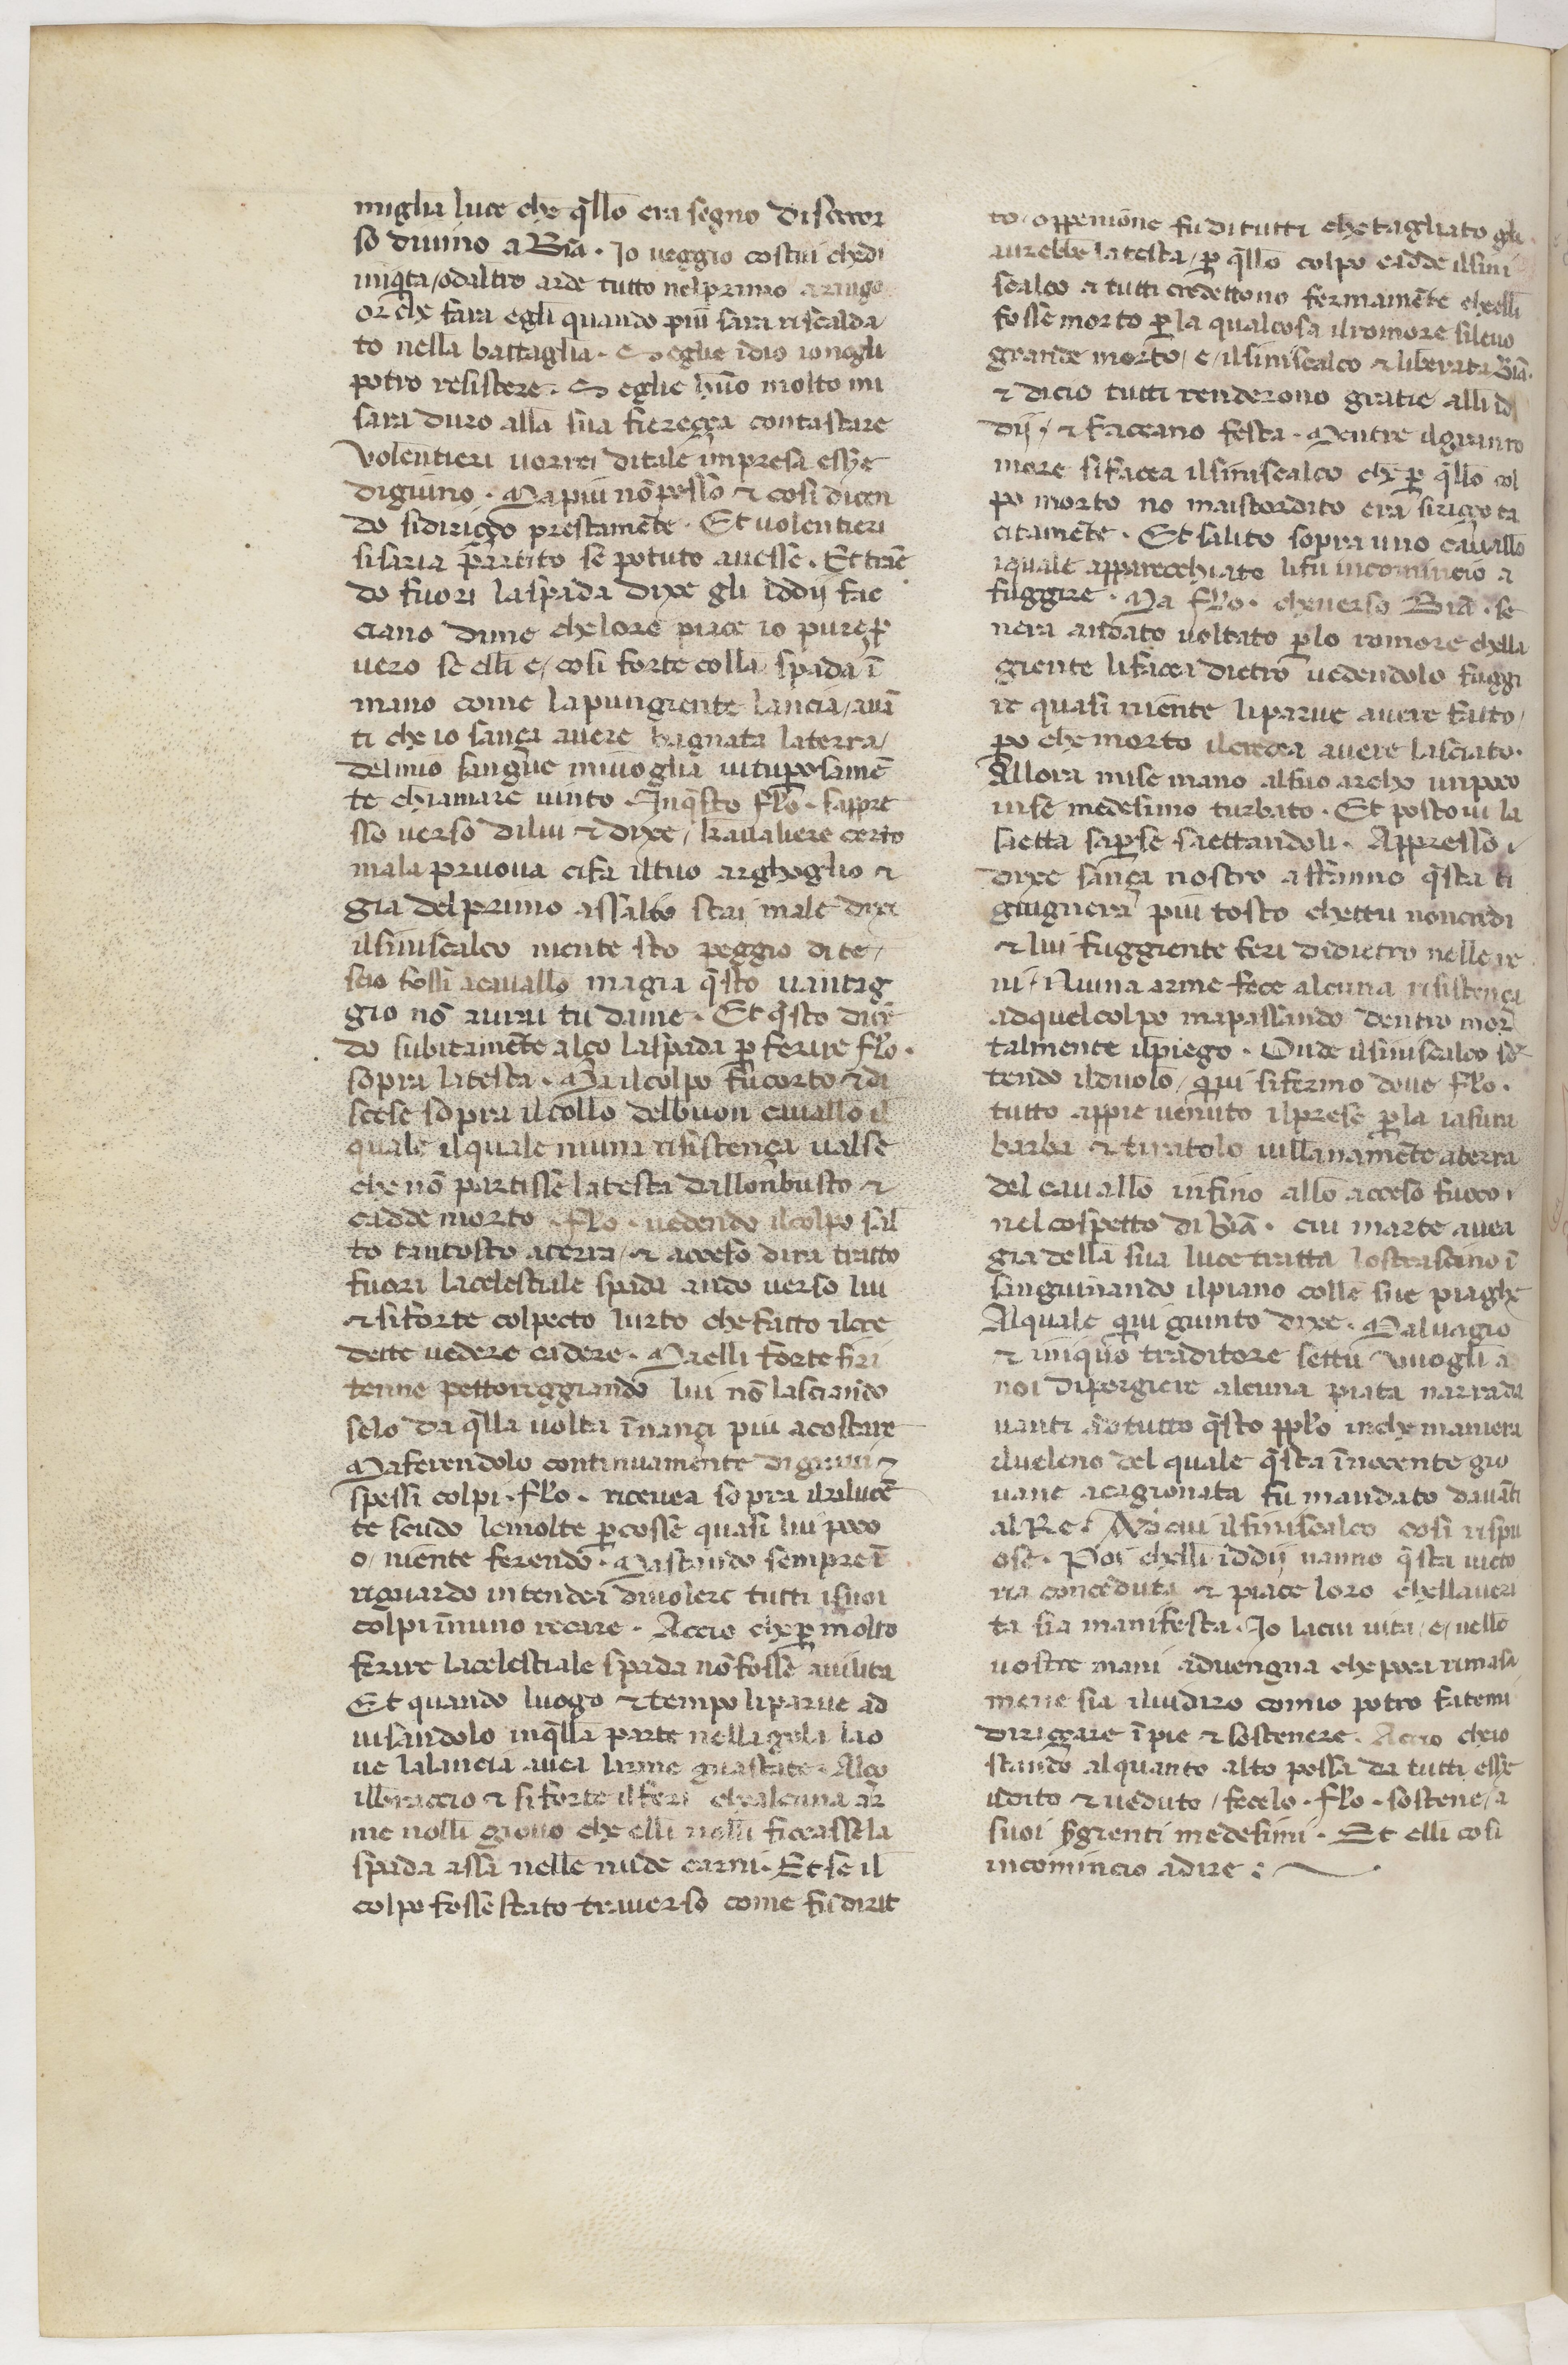 miglia luce che q̄llo era segno di secor
so divino a Biā. Io veggio costui che di
iniq̄ta/ od altro arde tutto nel primo aringo
or che fara egli quando piu sara riscalda
to nella battaglia. Se egli e idio io nogli
potro resistere. Se egli e huō molto mi
sara duro alla sua fiereçça contastare
volentieri vorrei di tale impresa esse
digiuno. Ma piu nō posso & cosi dicen
do si diriçço prestamēte. Et volentieri
si saria partito se potuto avesse. Et traē
do fuori la spada dixe gli iddij fac
ciano di me che lore piace io pure p̄
vero se elli e/ cosi forte colla spada ī
mano come la pungiente lancia/ avā
ti che io sança avere bagnata la terra/
del mio sangue mi voglia vitup̄osamē
te chiamare vinto. In q̄sto Flo. sappre
sso verso di lui & dixe/ kavaliere certo
mala pruova ci fa il tuo arghoglio &
gia del primo assalto stai male dixe
il siniscalco niente sto peggio di te/
sero fossi a cavallo ma gia q̄sto vantag
gio nō avrai tu da me. Et q̄sto dicē
do subitamēte alço la spada p̄ ferire Flo.
sopra la testa. Ma il colpo fu corto & di
scese sopra il collo del buon cavallo il
quale il quale niuna risistença valse
che nō partisse la testa dallonbusto &
cadde morto. Flo. vedendo il colpo sal
to tantosto a terra/ & acceso dira tratto
fuori la celestiale spada ando verso lui
& si forte col pecto lurto che facto il cre
dette vedere cadere. Ma elli forte si ri
tenne pettoreggiando lui nō lasciando
selo da q̄lla volta īnançi piu acostare
Ma ferendolo continuamente di gravi &
spessi colpi. Flo. ricevea sopra il rilucē
te scudo le molte p̄cosse quasi lui poco
o/ niente ferendo. Ma stando sempre ī
riguardo intendea di volere tutti i suoi
colpi īn uno recare. Accio che p̄ molto
ferire la celestiale spada nō fosse avilita
Et quando luogo & tempo li parve ad
visandolo in q̄lla parte nella gola lao
ve la lancia avea larme guastate. Alço
il braccio & si forte il feri che alcuna ar
me nolli giovo che elli nolli ficcasse la
spada assa nelle nude carni. Et se il
colpo fosse stato traverso come fu dirit
to/ oppenione fu di tutti che tagliato gli
avrebbe la testa/ p̄ q̄llo colpo cadde il sini
scalco & tutti credettono fermamēte chelli
fosse morto p̄ la qual cosa il romore si levo
grande morto/ e/ il siniscalco & liberata Biā.
& di cio tutti renderono gratie alli id
dij/ & faceano festa. Mentre il gran ro
more si facea il siniscalco che p̄ q̄llo col
po morto no ma istordito era si riçço ta
citamēte. Et salito sopra uno cavallo
iquale apparecchiato li fu incomincio a
fuggire. Ma Flo. che verso Biā. se
nera andato voltato p̄ lo romore chella
giente li facea dietro vedendolo fuggi
re quasi niente li parve avere facto/
p̄o che morto il credea avere lasciato.
Allora mise mano al suo archo un poco
in se medesimo turbato. Et postovi la
saetta sap̄se saettandoli. Appresso/
dixe sança nostro affanno q̄sta ti
giugnera piu tosto chettu non credi
& lui fuggiente feri di dietro nelle re
ni/ Niuna arme fece alcuna risistença
ad quel colpo ma passando dentro mor
talmente il piego. Onde il siniscalco sē
tendo il duolo/ q̄ivi si fermo dove Flo.
tutto appie venuto il prese p̄ la iasura
barba & tiratolo villanamēte a terra
del cavallo infino allo acceso fuoco/
nel cospetto di Biā. cui marte avea
gia della sua luce tratta lo strascino ī
sanguinando il piano colle sue piaghe
Al quale q̄ivi giunto dixe. Malvagio
& iniquo traditore settu vuogli a
noi di porgiere alcuna piata narra da
vanti ad tutto q̄sto pp̄lo in che maniera
il veleno del quale q̄sta īnocente gio
vane acagionata fu mandato davāti
al Re. Ad cui il siniscalco cosi rispu
ose. Poi chelli iddij vanno q̄sta victo
ria conceduta & piace loro chella veri
ta sia manifesta. Io la cui vita/ e/ nelle
vostre mani advengna che poca rimasa
mene sia il vi diro comio potro fatemi
diriççare ī pie & sostenere. Accio che io
stando alquanto alto possa da tutti esse
udito & veduto/ fecelo. Flo. sostene/ a
suoi s̄gienti medesimi. Et elli cosi
incomincio a dire: